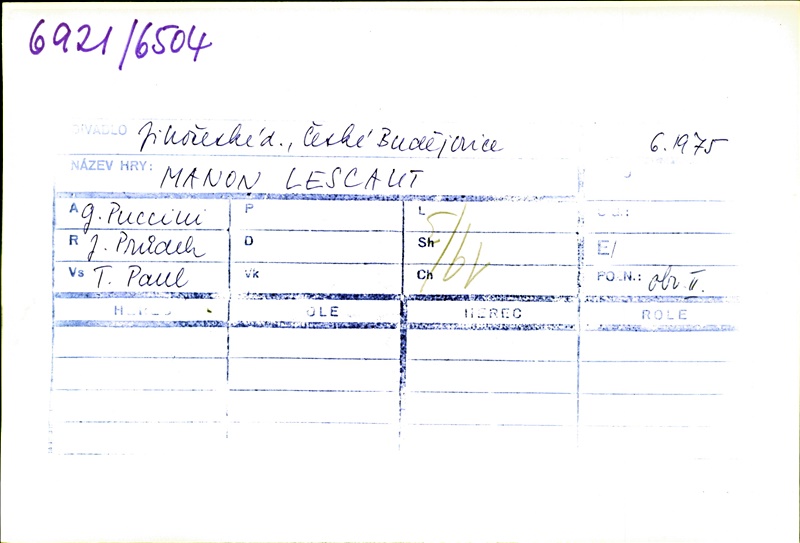 6921/6504
DIVADLO Jihočeské d., České Budějovice 6.1975
NÁZEV HRY: MANON LESCAUT
A G. Puccini P L
R J. Průdek D Sh E/
Vs T. Paul Vk Ch POZN.: obr. II.
HEREC ROLE HEREC ROLE